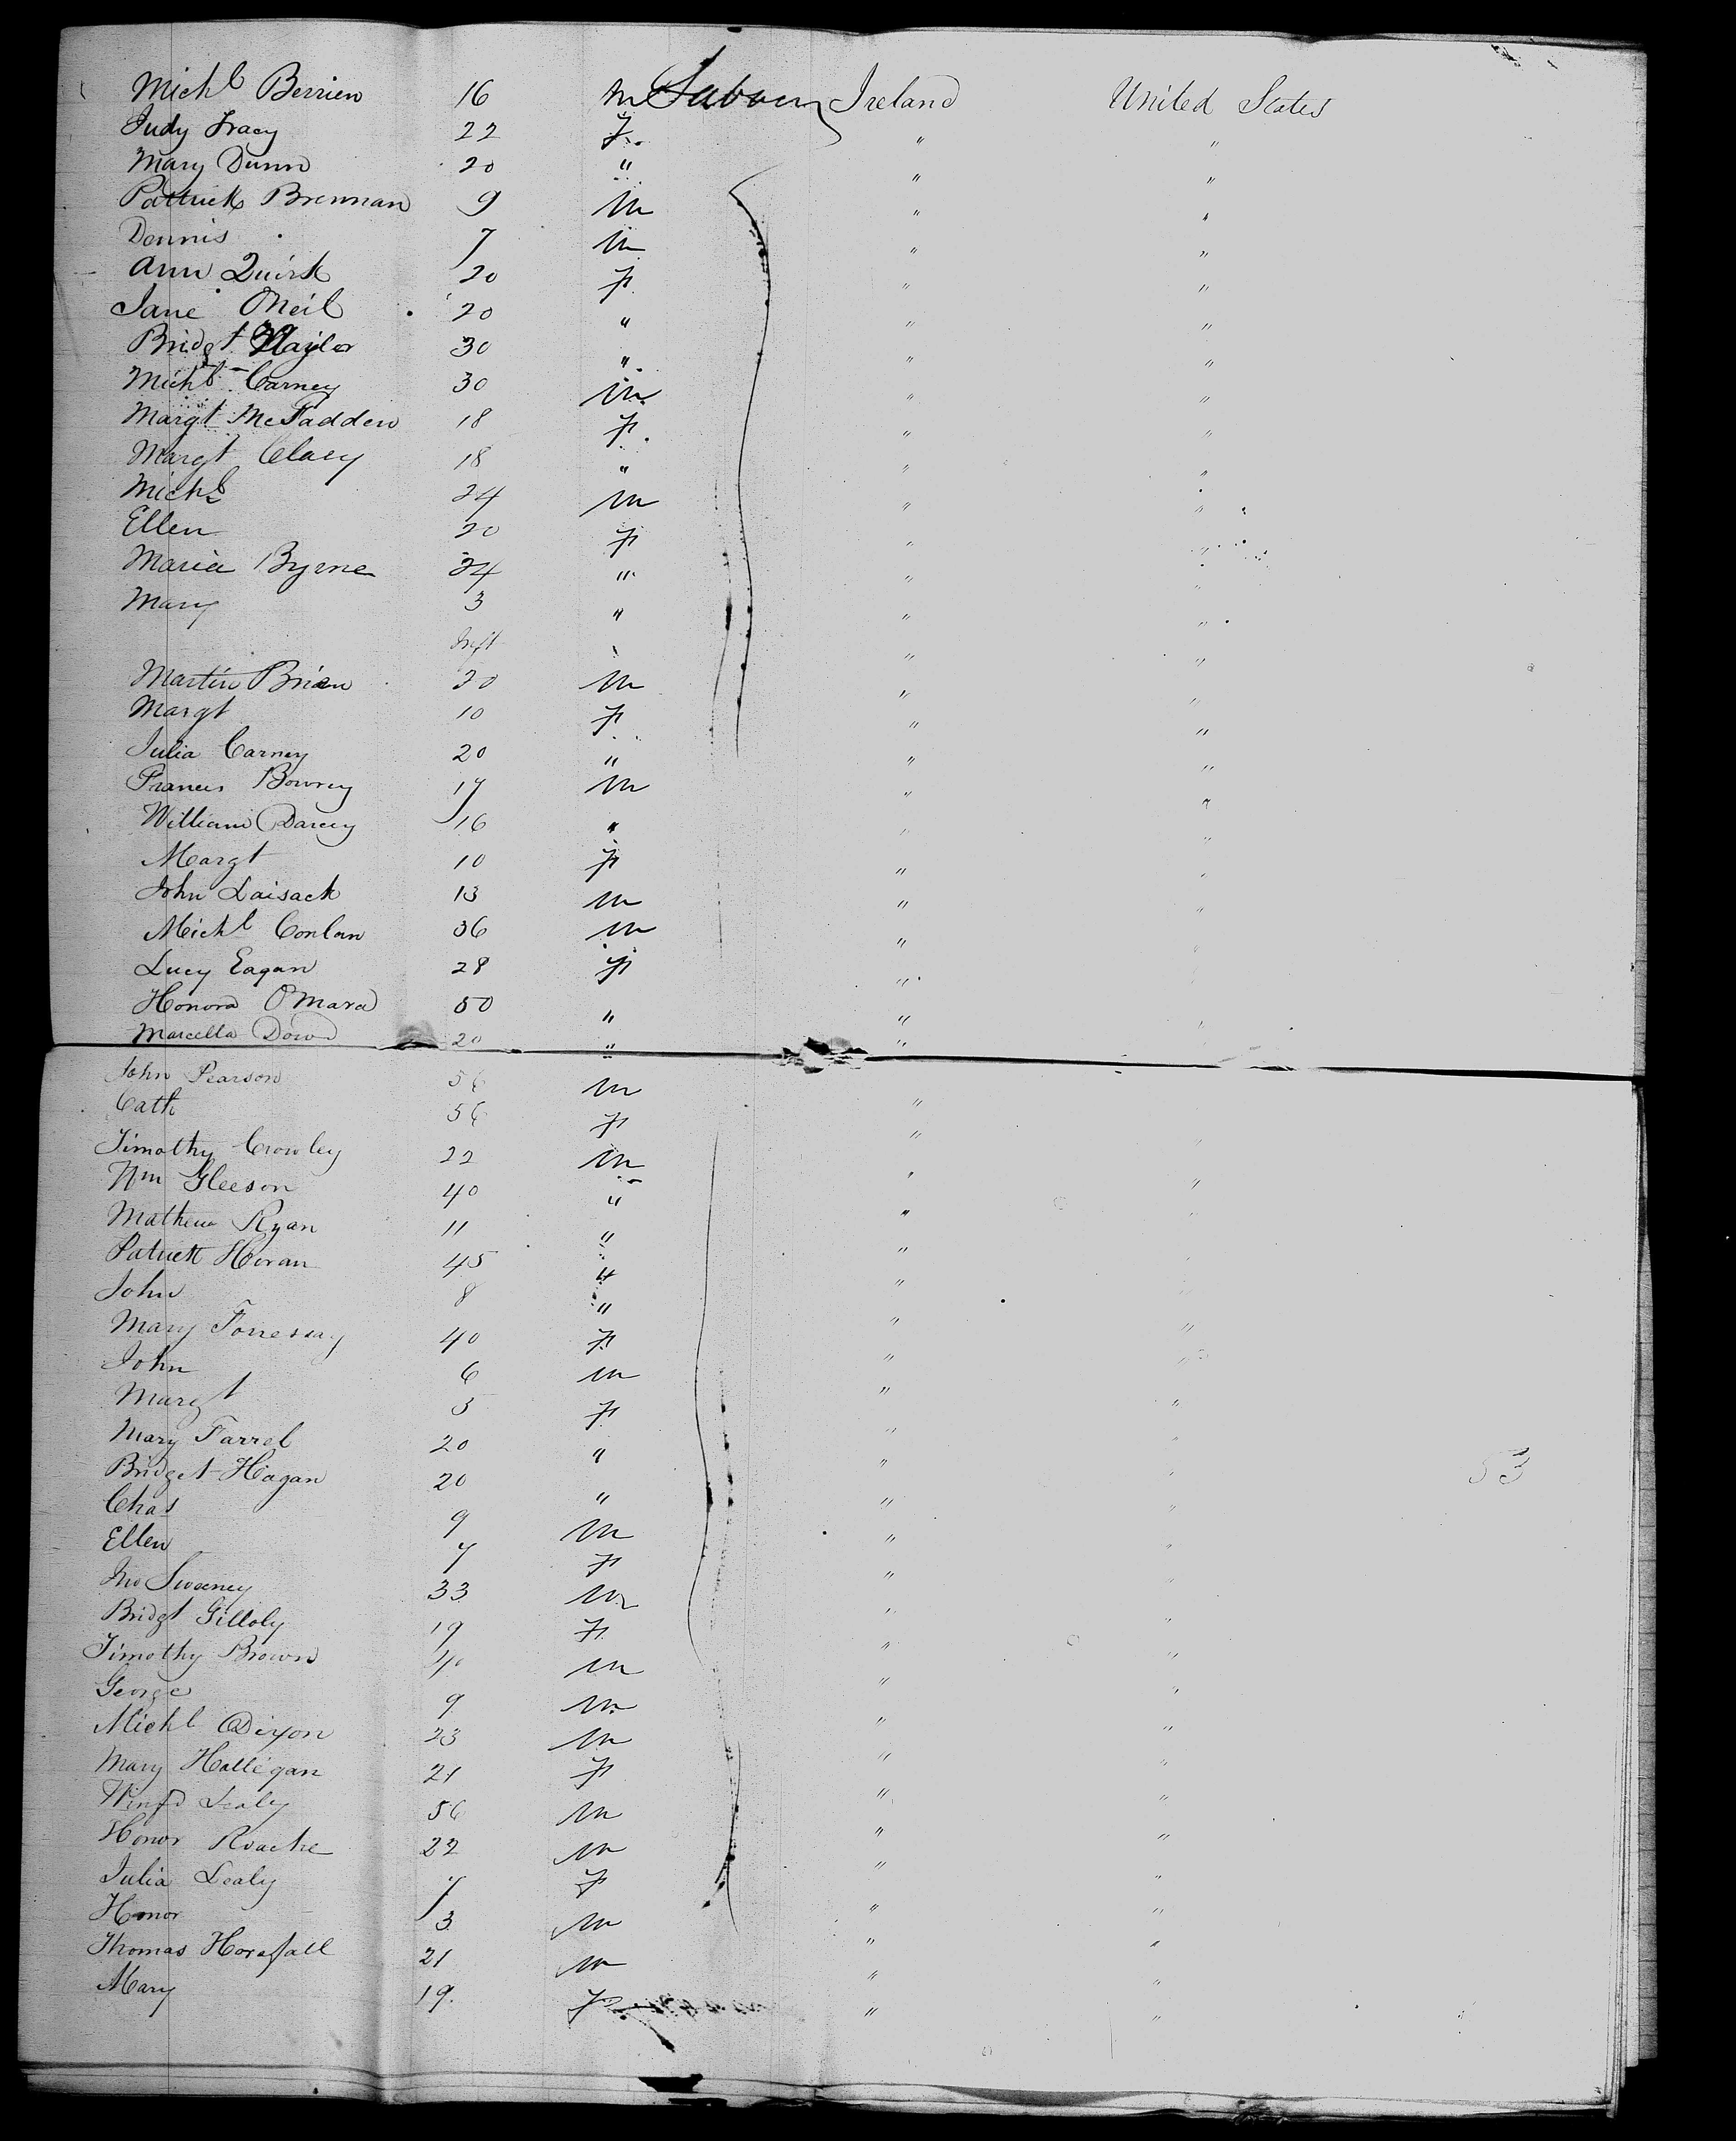 Michl Berrien 16 M Labourer Ireland United States
Judy Tracy 22 F " "
Mary Dunn 20 " " "
Patrick Brennan 9 M " "
Dennis 7 M " "
Ann Quirk 20 F " "
Jane ONeil 20 " " "
Bridgt Naylor 30 " " "
Michl Carney 30 M " "
Margt McFadden 18 F " "
Margt Clacy 18 " " "
Michl 24 M " "
Ellen 20 F " "
Maria Byrne 24 " " "
Mary 3 " " "
Inft " " "
Martin Brien 20 M " "
Margt 10 F " "
Julia Carney 20 " " "
Francis Bowrey 17 M " "
William Darcey 16 " " "
Margt 10 F " "
John Laisack 13 M " "
Michl Conlan 36 M " "
Lucy Eagan 28 F " "
Honora OMara 50 " " "
Marcella Dowd 20 " " "
John Pearson 56 M "
Cath 56 F " "
Timothy Crowley 22 M " "
Wm Gleeson 40 " " "
Mathew Ryan 11 " " "
Patrick Horan 45 " " "
John 8 " " "
Mary 40 F " "
John 6 M " "
Margt 5 F " "
Mary Farrel 20 " " "
Bridget Hagan 20 " " " 53
Chas 9 M " "
Ellen 7 F " "
Jno Sweeney 33 M " "
Bridgt Gilloly 19 F " "
Timothy Brown 40 M " "
George 9 M " "
Michl Dixon 23 M " "
Mary Halligan 21 F " "
Winfd Lealy 56 M " "
Honor Roache 22 M " "
Julia Lealy 7 F " "
Honor 3 M " "
Thomas Horsfall 21 M " "
Mary 19 F " "